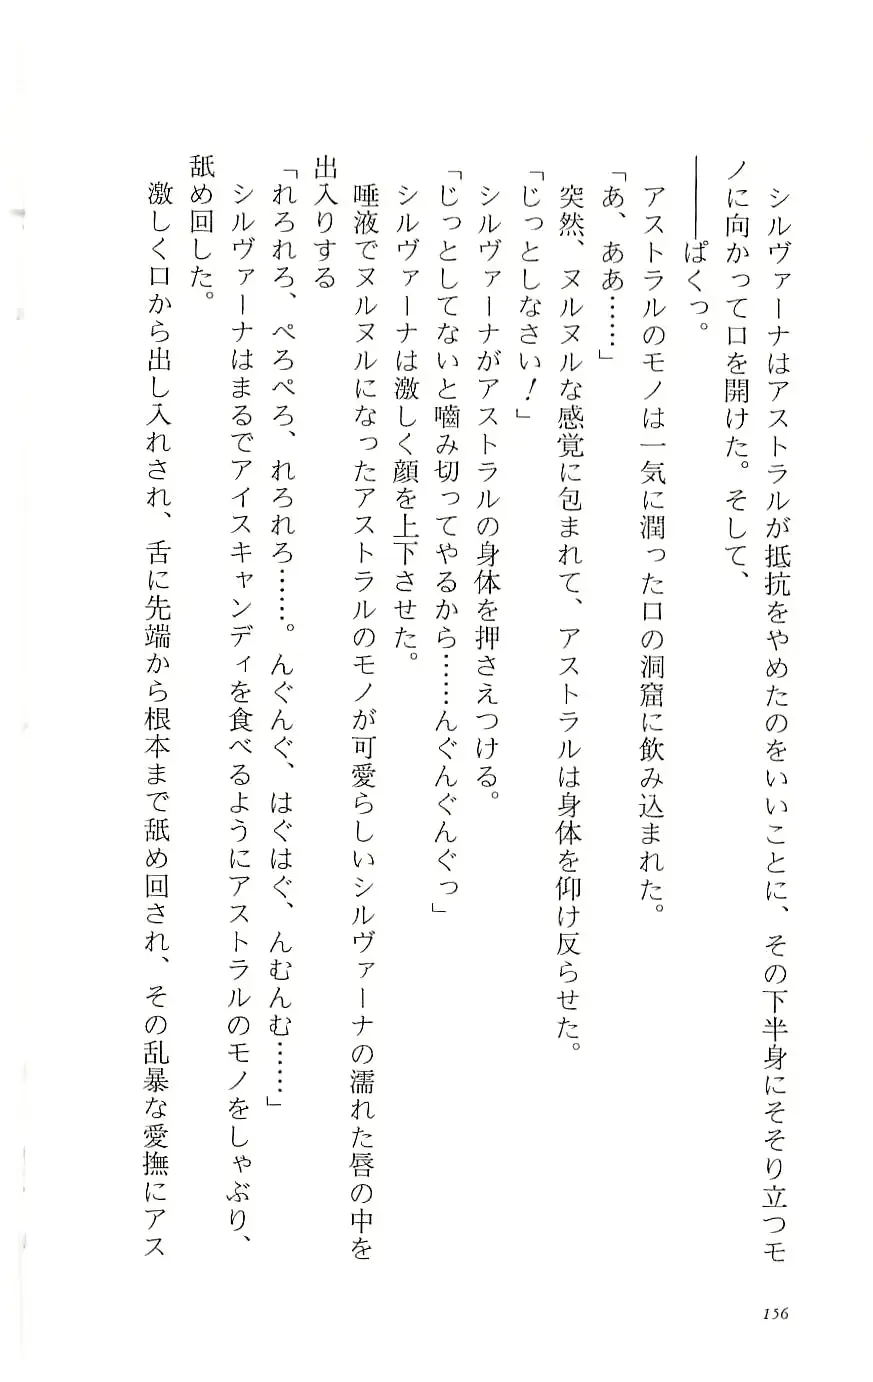 シルヴァーナはアストラルが抵抗をやめたのをいいことに、その下半身にそそり立つモ
ノに向かって口を開けた。そして、
――――ぱくっ。
アストラルのモノは一気に潤った口の洞窟に飲み込まれた。
「あ、ああ……」
突然、ヌルヌルな感覚に包まれて、アストラルは身体を仰け反らせた。
「じっとしなさい！」
シルヴァーナがアストラルの身体を押さえつける。
「じっとしてないと嚙み切ってやるから……んぐんぐんぐっ」
シルヴァーナは激しく顔を上下させた。
唾液でヌルヌルになったアストラルのモノが可愛らしいシルヴァーナの濡れた唇の中を
出入りする
「れろれろ、ぺろぺろ、れろれろ……。んぐんぐ、はぐはぐ、んむんむ……」
シルヴァーナはまるでアイスキャンディを食べるようにアストラルのモノをしゃぶり、
舐め回した。
激しく口から出し入れされ、舌に先端から根本まで舐め回され、その乱暴な愛撫にアス
156